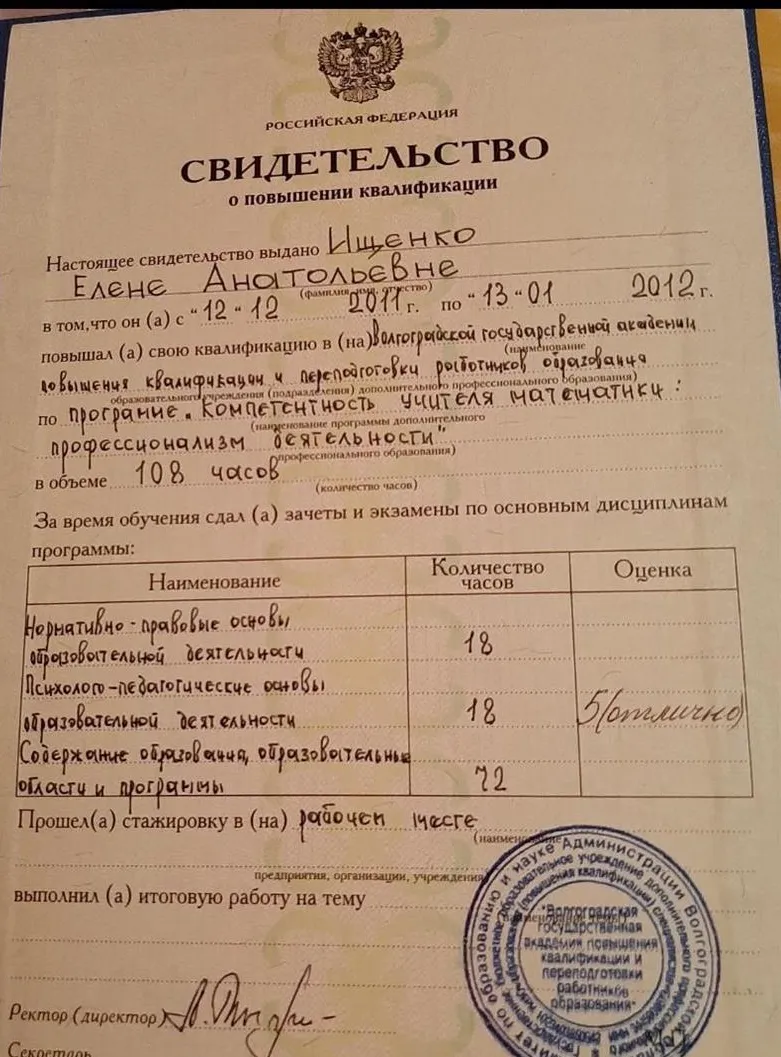 РОССИЙСКАЯ ФЕДЕРАЦИЯ
СВИДЕТЕЛЬСТВО
о повышении квалификации
Настоящее свидетельство выдано Ищенко
Елене Анатольевне
(фамилия, имя, отчество)
в том, что он (а) с "12" 12 2011 г. по "13" 01 2012 г.
повышал (а) свою квалификацию в (на) Волгоградской государственной академии
(наименование
повышения квалификации и переподготовки работников образования
образовательного учреждения (подразделения) дополнительного профессионального образования)
по програме "Компетентность учителя математики:
(наименование программы дополнительного
профессионализм деятельности"
профессионального образования)
в объеме 108 часов
(количество часов)
За время обучения сдал (а) зачеты и экзамены по основным дисциплинам
программы:
Наименование Количество часов Оценка
Нормативно-правовые основы
образовательной деятельности 18
Психолого-педагогические основы
образовательной деятельности 18 5(отлично)
Содержание образования, образовательные
области и программы 72
Прошел(а) стажировку в (на) рабочем месте
(наименование
предприятия, организации, учреждения
выполнил (а) итоговую работу на тему
"Волгоградская
государственная
академия повышения
квалификации и
переподготовки
работников
образования"
Ректор (директор)
Секретарь